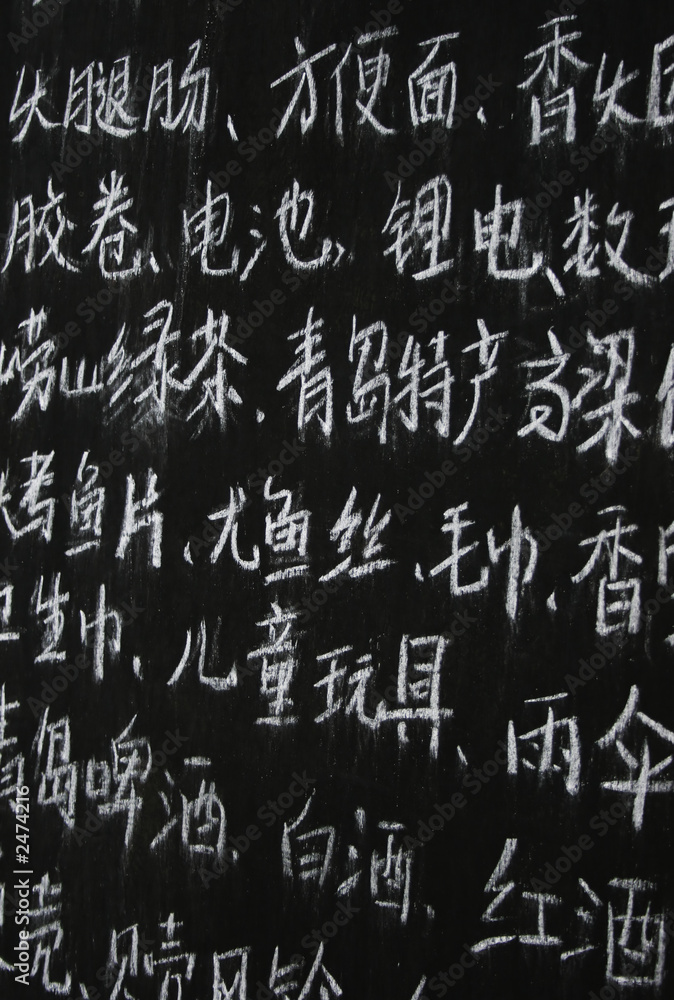 火腿肠、方便面、香烟
胶卷、电池，锂电、数
崂山绿茶，青岛特产高粱
烤鱼片、尤鱼丝、毛巾、香
卫生巾、儿童玩具、雨伞
青岛啤酒、白酒、红酒
壳、贝壳风铃、
Adobe Stock | #2474216